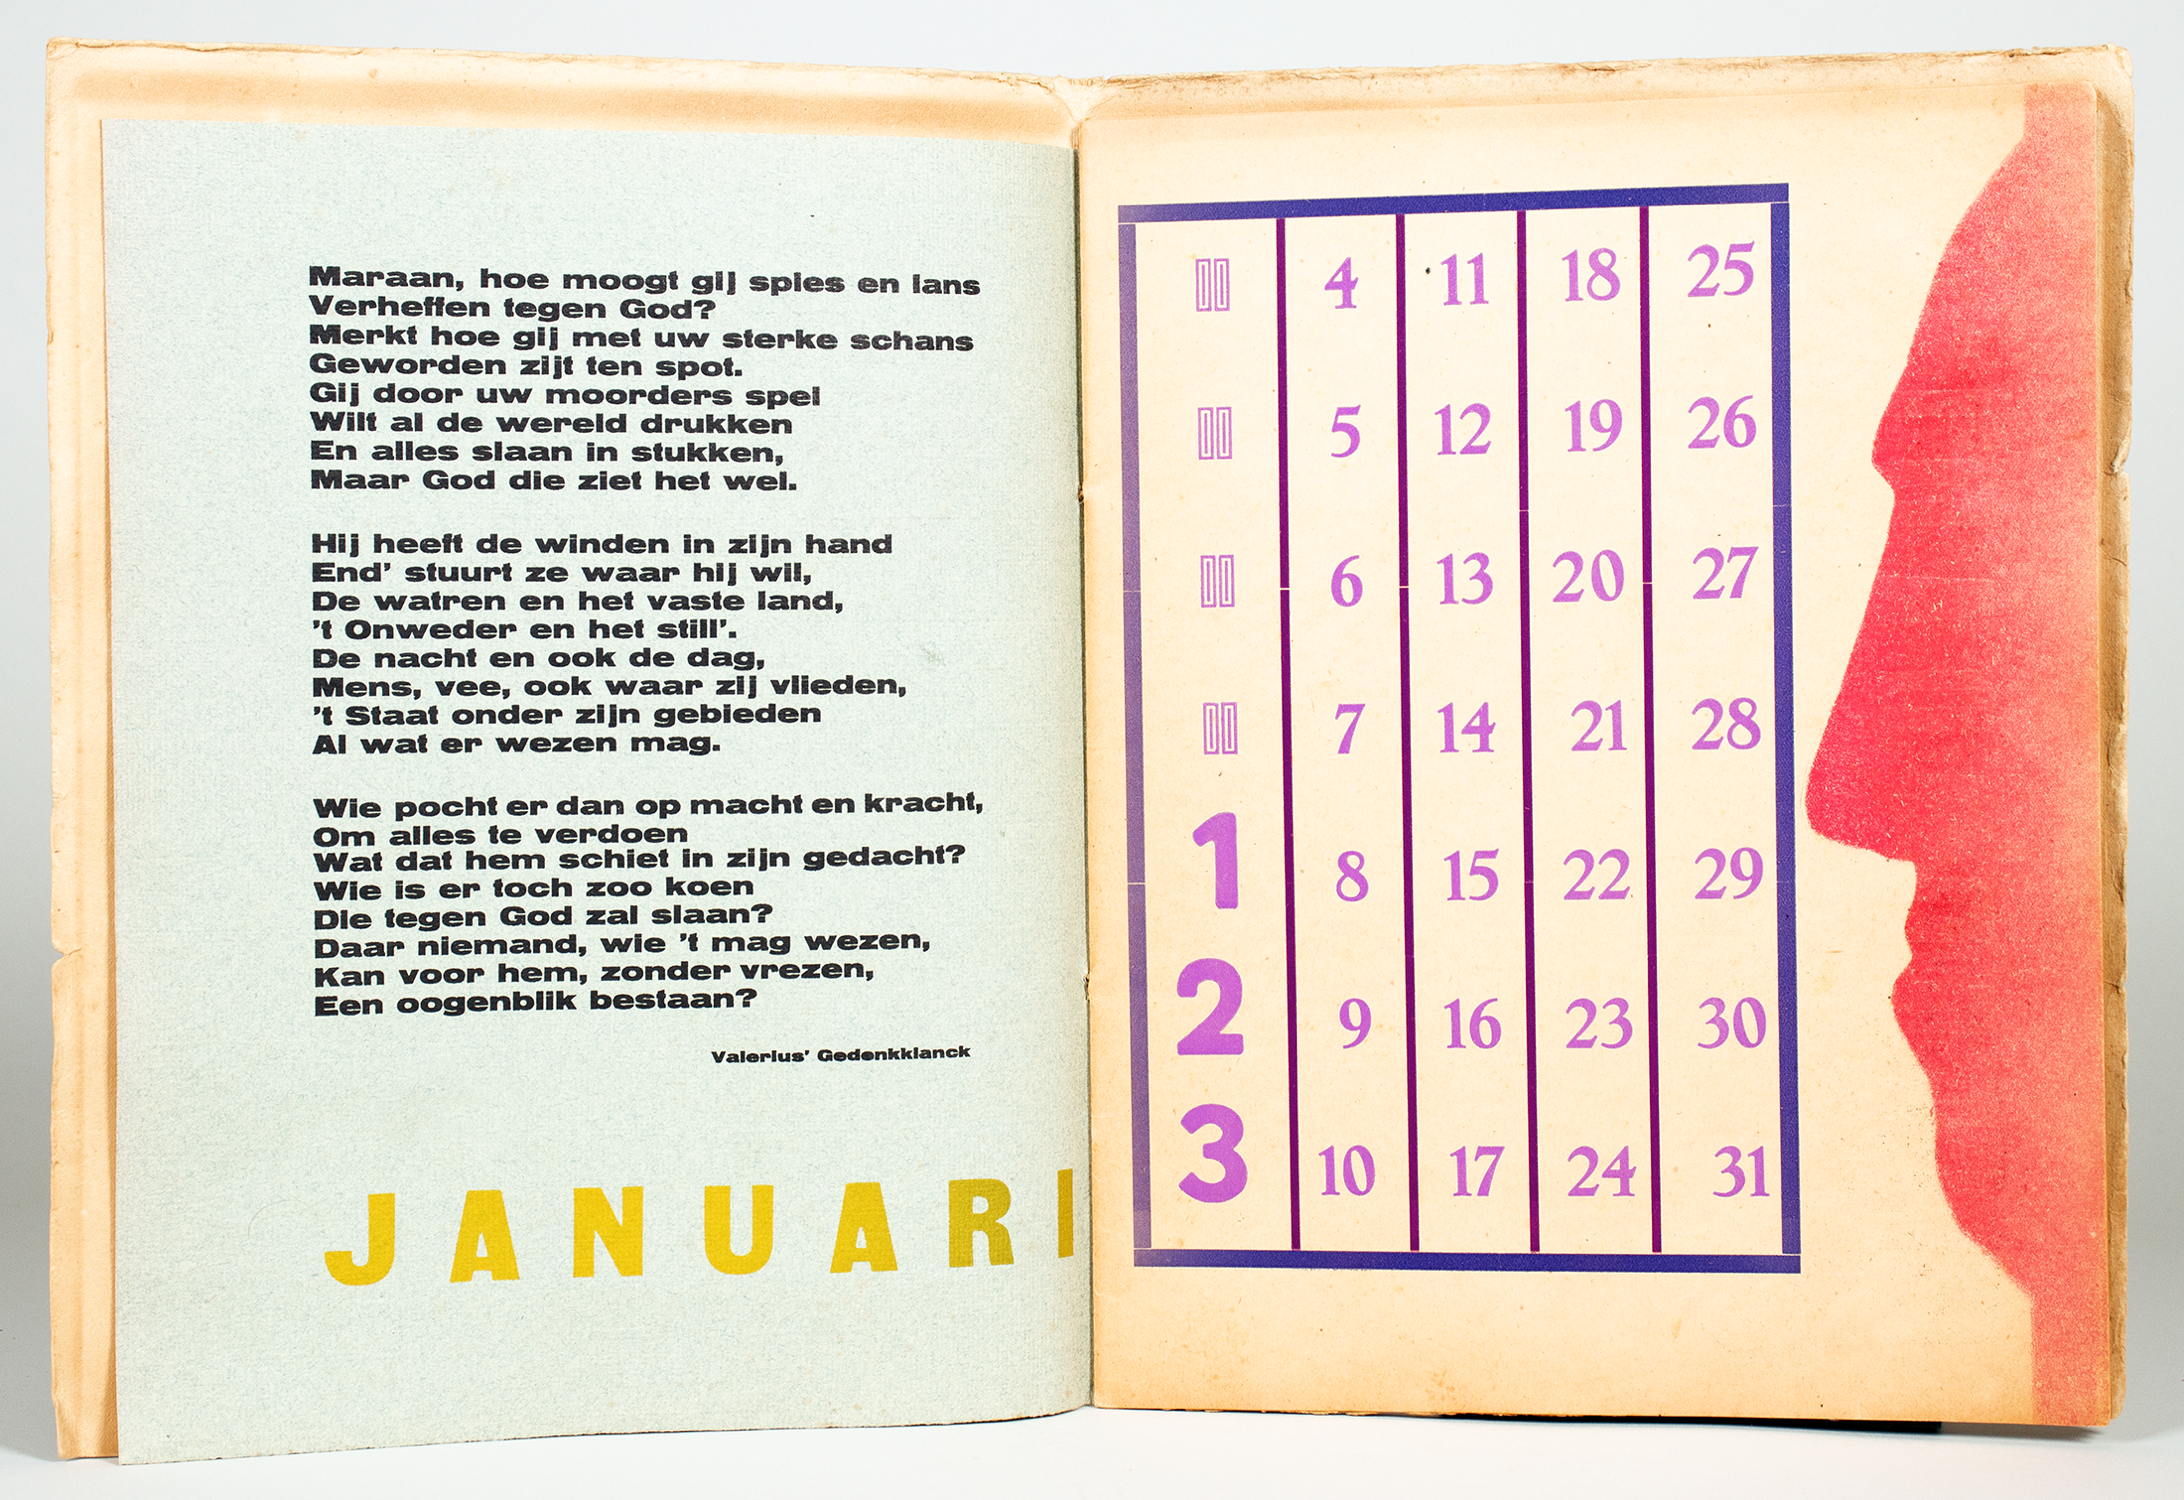 Maraan, hoe moogt gij spies en lans
Verheffen tegen God?
Merkt hoe gij met uw sterke schans
Geworden zijt ten spot.
Gij door uw moorders spel
Wilt al de wereld drukken
En alles slaan in stukken,
Maar God die ziet het wel.
Hij heeft de winden in zijn hand
End' stuurt ze waar hij wil,
De watren en het vaste land,
't Onweder en het still'.
De nacht en ook de dag,
Mens, vee, ook waar zij vlieden,
't Staat onder zijn gebieden
Al wat er wezen mag.
Wie pocht er dan op macht en kracht,
Om alles te verdoen
Wat dat hem schiet in zijn gedacht?
Wie is er toch zoo koen
Die tegen God zal slaan?
Daar niemand, wie 't mag wezen,
Kan voor hem, zonder vrezen,
Een oogenblik bestaan?
Valerius' Gedenkklanck
JANUARI
4 11 18 25
5 12 19 26
6 13 20 27
7 14 21 28
1 8 15 22 29
2 9 16 23 30
3 10 17 24 31